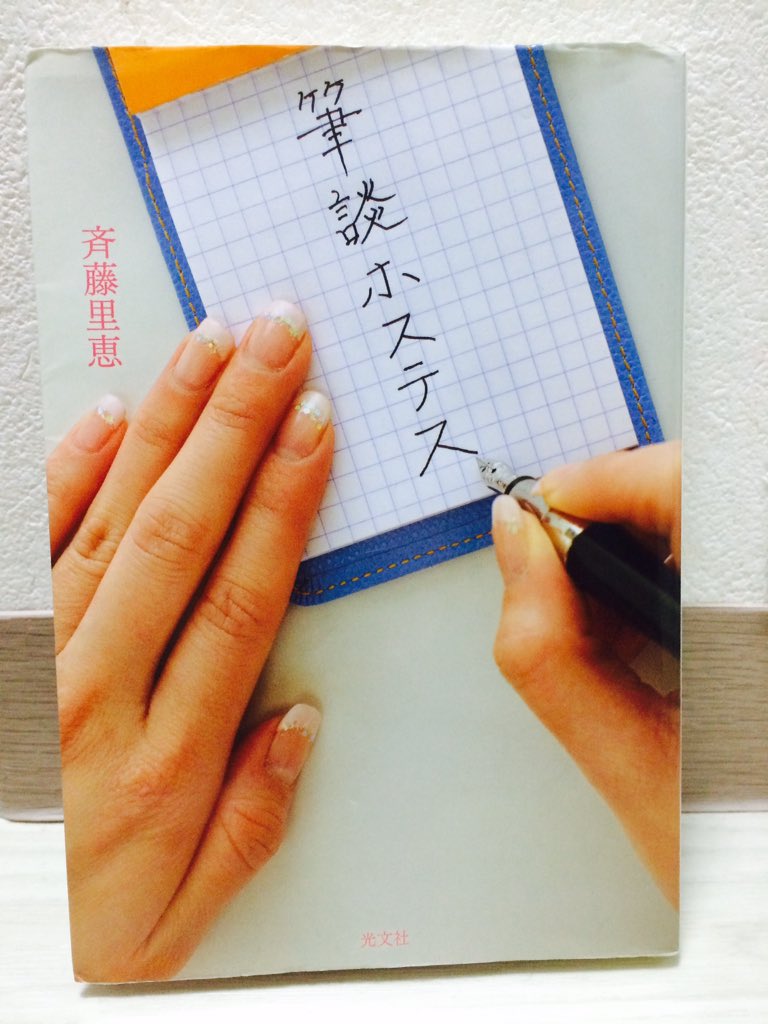 筆談ホステス
斉藤里恵
光文社